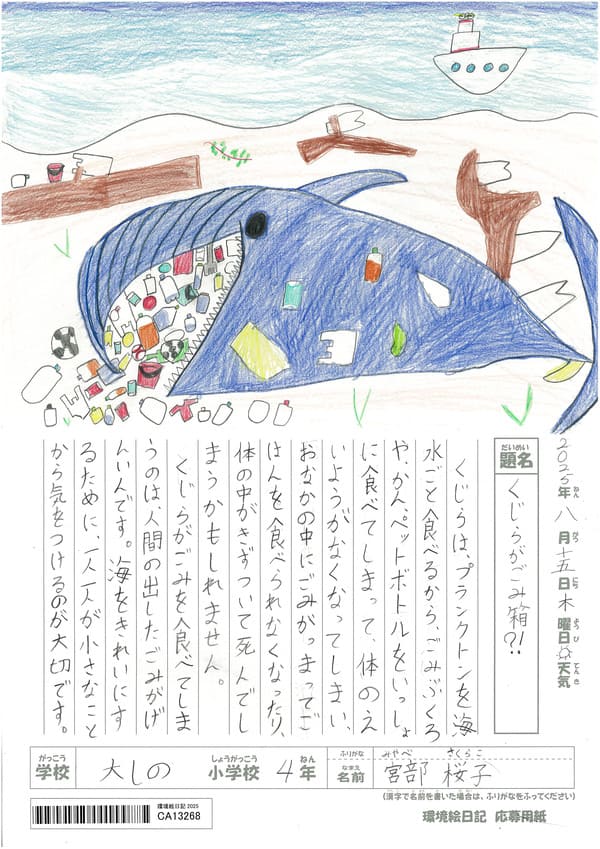 2025年八月十五日木曜日☼天気
題名 だいめい
くじらがごみ箱?!
くじらは、プランクトンを海
水ごと食べるから、ごみぶくろ
や、かん、ペットボトルをいっしょ
に食べてしまって、体のえ
いようがなくなってしまい、
おなかの中にごみがつまってご
はんを食べられなくなったり、
体の中がきずついて死んでし
まうかもしれません。
くじらがごみを食べてしま
うのは、人間の出したごみがげ
んいんです。海をきれいにす
るために、一人一人が小さなこと
から気をつけるのが大切です。
がっこう 学校 大しの しょうがっこう 小学校 4年 ねん
ふりがな みやべ さくらこ
なまえ 名前 宮部 桜子
(漢字で名前を書いた場合は、ふりがなをふってください)
環境絵日記 2025
CA13268
環境絵日記 応募用紙